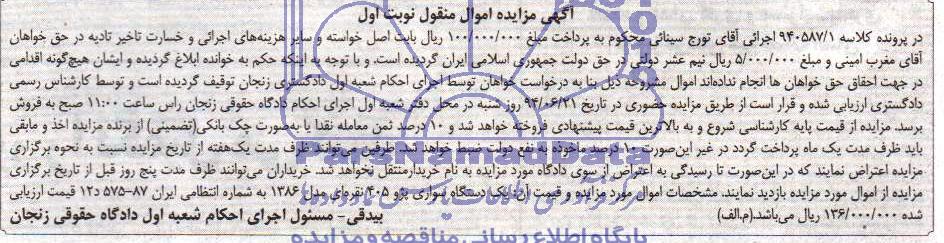 آگهی مزایده اموال منقول نوبت اول
در پرونده کلاسه ۹۴۰۵۸۷/۱ اجرائی آقای تورج سینائی محکوم به پرداخت مبلغ ۱۰۰/۰۰۰/۰۰۰ ریال بابت اصل خواسته و سایر هزینه‌های اجرائی و خسارت تاخیر تادیه در حق خواهان
آقای مغرب امینی و مبلغ ۵/۰۰۰/۰۰۰ ریال نیم عشر دولتی در حق دولت جمهوری اسلامی ایران گردیده است. و با توجه به اینکه حکم به خوانده ابلاغ گردیده و ایشان هیچ‌گونه اقدامی
در جهت احقاق حق خواهان ها انجام نداده‌اند اموال مشروحه ذیل بنا به درخواست خواهان توسط اجرای احکام شعبه اول دادگستری زنجان توقیف گردیده است و توسط کارشناس رسمی
دادگستری ارزیابی شده و قرار است از طریق مزایده حضوری در تاریخ ۹۴/۰۶/۲۱ روز شنبه در محل دفتر شعبه اول اجرای احکام دادگاه حقوقی زنجان راس ساعت ۱۱:۰۰ صبح به فروش
برسد. مزایده از قیمت پایه کارشناسی شروع و به بالاترین قیمت پیشنهادی فروخته خواهد شد و ۱۰ درصد ثمن معامله نقدا یا به‌صورت چک بانکی(تضمینی) از برنده مزایده اخذ و مابقی
باید ظرف مدت یک ماه پرداخت گردد در غیر این‌صورت ۱۰ درصد ماخوذه به نفع دولت ضبط خواهد شد. طرفین می‌توانند ظرف مدت یک‌هفته از تاریخ مزایده نسبت به نحوه برگزاری
مزایده اعتراض نمایند که در این‌صورت تا رسیدگی به اعتراض از سوی دادگاه مورد مزایده به نام خریدارمنتقل نخواهد شد. خریداران می‌توانند ظرف مدت پنج روز قبل از تاریخ برگزاری
مزایده از اموال مورد مزایده بازدید نمایند. مشخصات اموال مورد مزایده و قیمت آن: یک دستگاه سواری پژو ۴۰۵ نقره‌ای مدل ۱۳۸۶ به شماره انتظامی ایران ۸۷-۵۷۵ ۱۲ قیمت ارزیابی
شده ۱۳۶/۰۰۰/۰۰۰ ریال می‌باشد.(م.الف)
بیدقی- مسئول اجرای احکام شعبه اول دادگاه حقوقی زنجان
ParsNamadData
پایگاه اطلاع رسانی مناقصه و مزایده